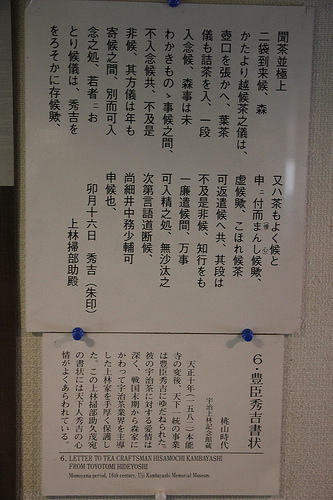 聞茶並極上
二袋到来候、森
かたより越候茶之儀は、
壺口を張かへ、葉茶
儀も詰茶を入、一段
入念候、森事は未
わかきものゝ事候之間、
不入念候共、不及是
非候、其方儀は年も
寄候之間、別而可入
念之処、若者ニお
とり候儀は、秀吉を
をろそかに存候歟、
又ハ茶もよく候と
申ニ付而まんし候歟、
虚候歟、こほれ候茶
可返遣候へ共、其段は
不及是非候、知行をも
一廉遣候間、万事
可入精之処、無沙汰之
次第言語道断候、
尚細井中務少輔可
申候也、
卯月十六日 秀吉(朱印)
上林掃部助殿
6・豊臣秀吉書状
桃山時代
宇治上林記念館蔵
天正十年(一五八二)本能
寺の変後、天下一統の事業
は豊臣秀吉にゆだねられた。
彼の宇治茶に対する愛情は
深く、戦国末期から森家に
かわって宇治茶業界を主導
した上林家を手厚く保護し
た。この上林掃部助久茂宛
の書状には天下人秀吉の心
情がよくあらわれている。
6. LETTER TO TEA CRAFTSMAN HISAMOCHI KAMBAYASHI
FROM TOYOTOMI HIDEYOSHI
Momoyama period, 16th century, Uji Kambayashi Memorial Museum